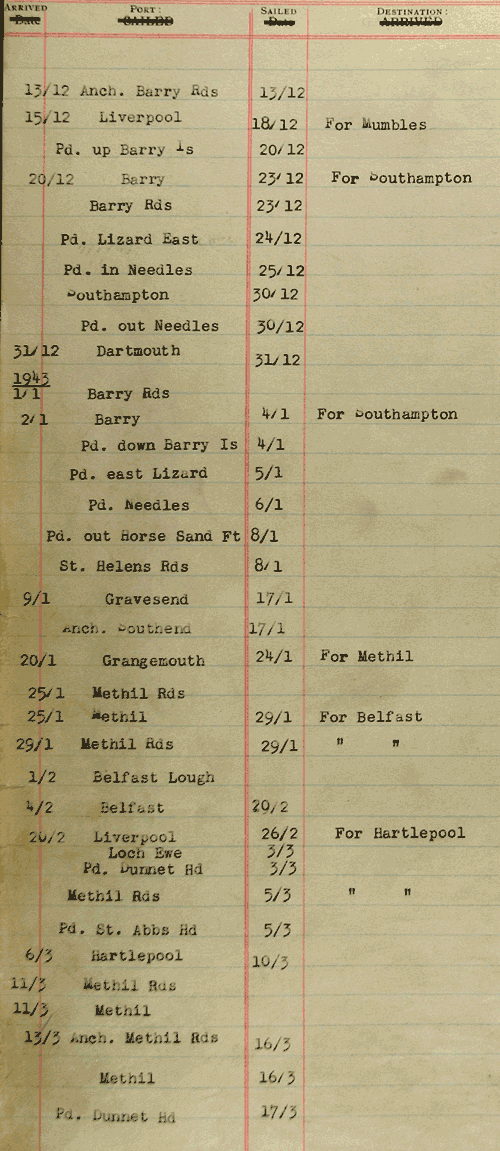 ARRIVED PORT: SAILED DESTINATION:
Date SAILED Date ARRIVED
13/12 Anch. Barry Rds 13/12
15/12 Liverpool 18/12 For Mumbles
Pd. up Barry Is 20/12
20/12 Barry 23/12 For Southampton
Barry Rds 23/12
Pd. Lizard East 24/12
Pd. in Needles 25/12
Southampton 30/12
Pd. out Needles 30/12
31/12 Dartmouth 31/12
1943
1/1 Barry Rds
2/1 Barry 4/1 For Southampton
Pd. down Barry Is 4/1
Pd. east Lizard 5/1
Pd. Needles 6/1
Pd. out Horse Sand Ft 8/1
St. Helens Rds 8/1
9/1 Gravesend 17/1
Anch. Southend 17/1
20/1 Grangemouth 24/1 For Methil
25/1 Methil Rds
25/1 Methil 29/1 For Belfast
29/1 Methil Rds 29/1 " "
1/2 Belfast Lough
4/2 Belfast 20/2
20/2 Liverpool 26/2 For Hartlepool
Loch Ewe 3/3
Pd. Dunnet Hd 3/3
Methil Rds 5/3 " "
Pd. St. Abbs Hd 5/3
6/3 Hartlepool 10/3
11/3 Methil Rds
11/3 Methil
13/3 Anch. Methil Rds 16/3
Methil 16/3
Pd. Dunnet Hd 17/3